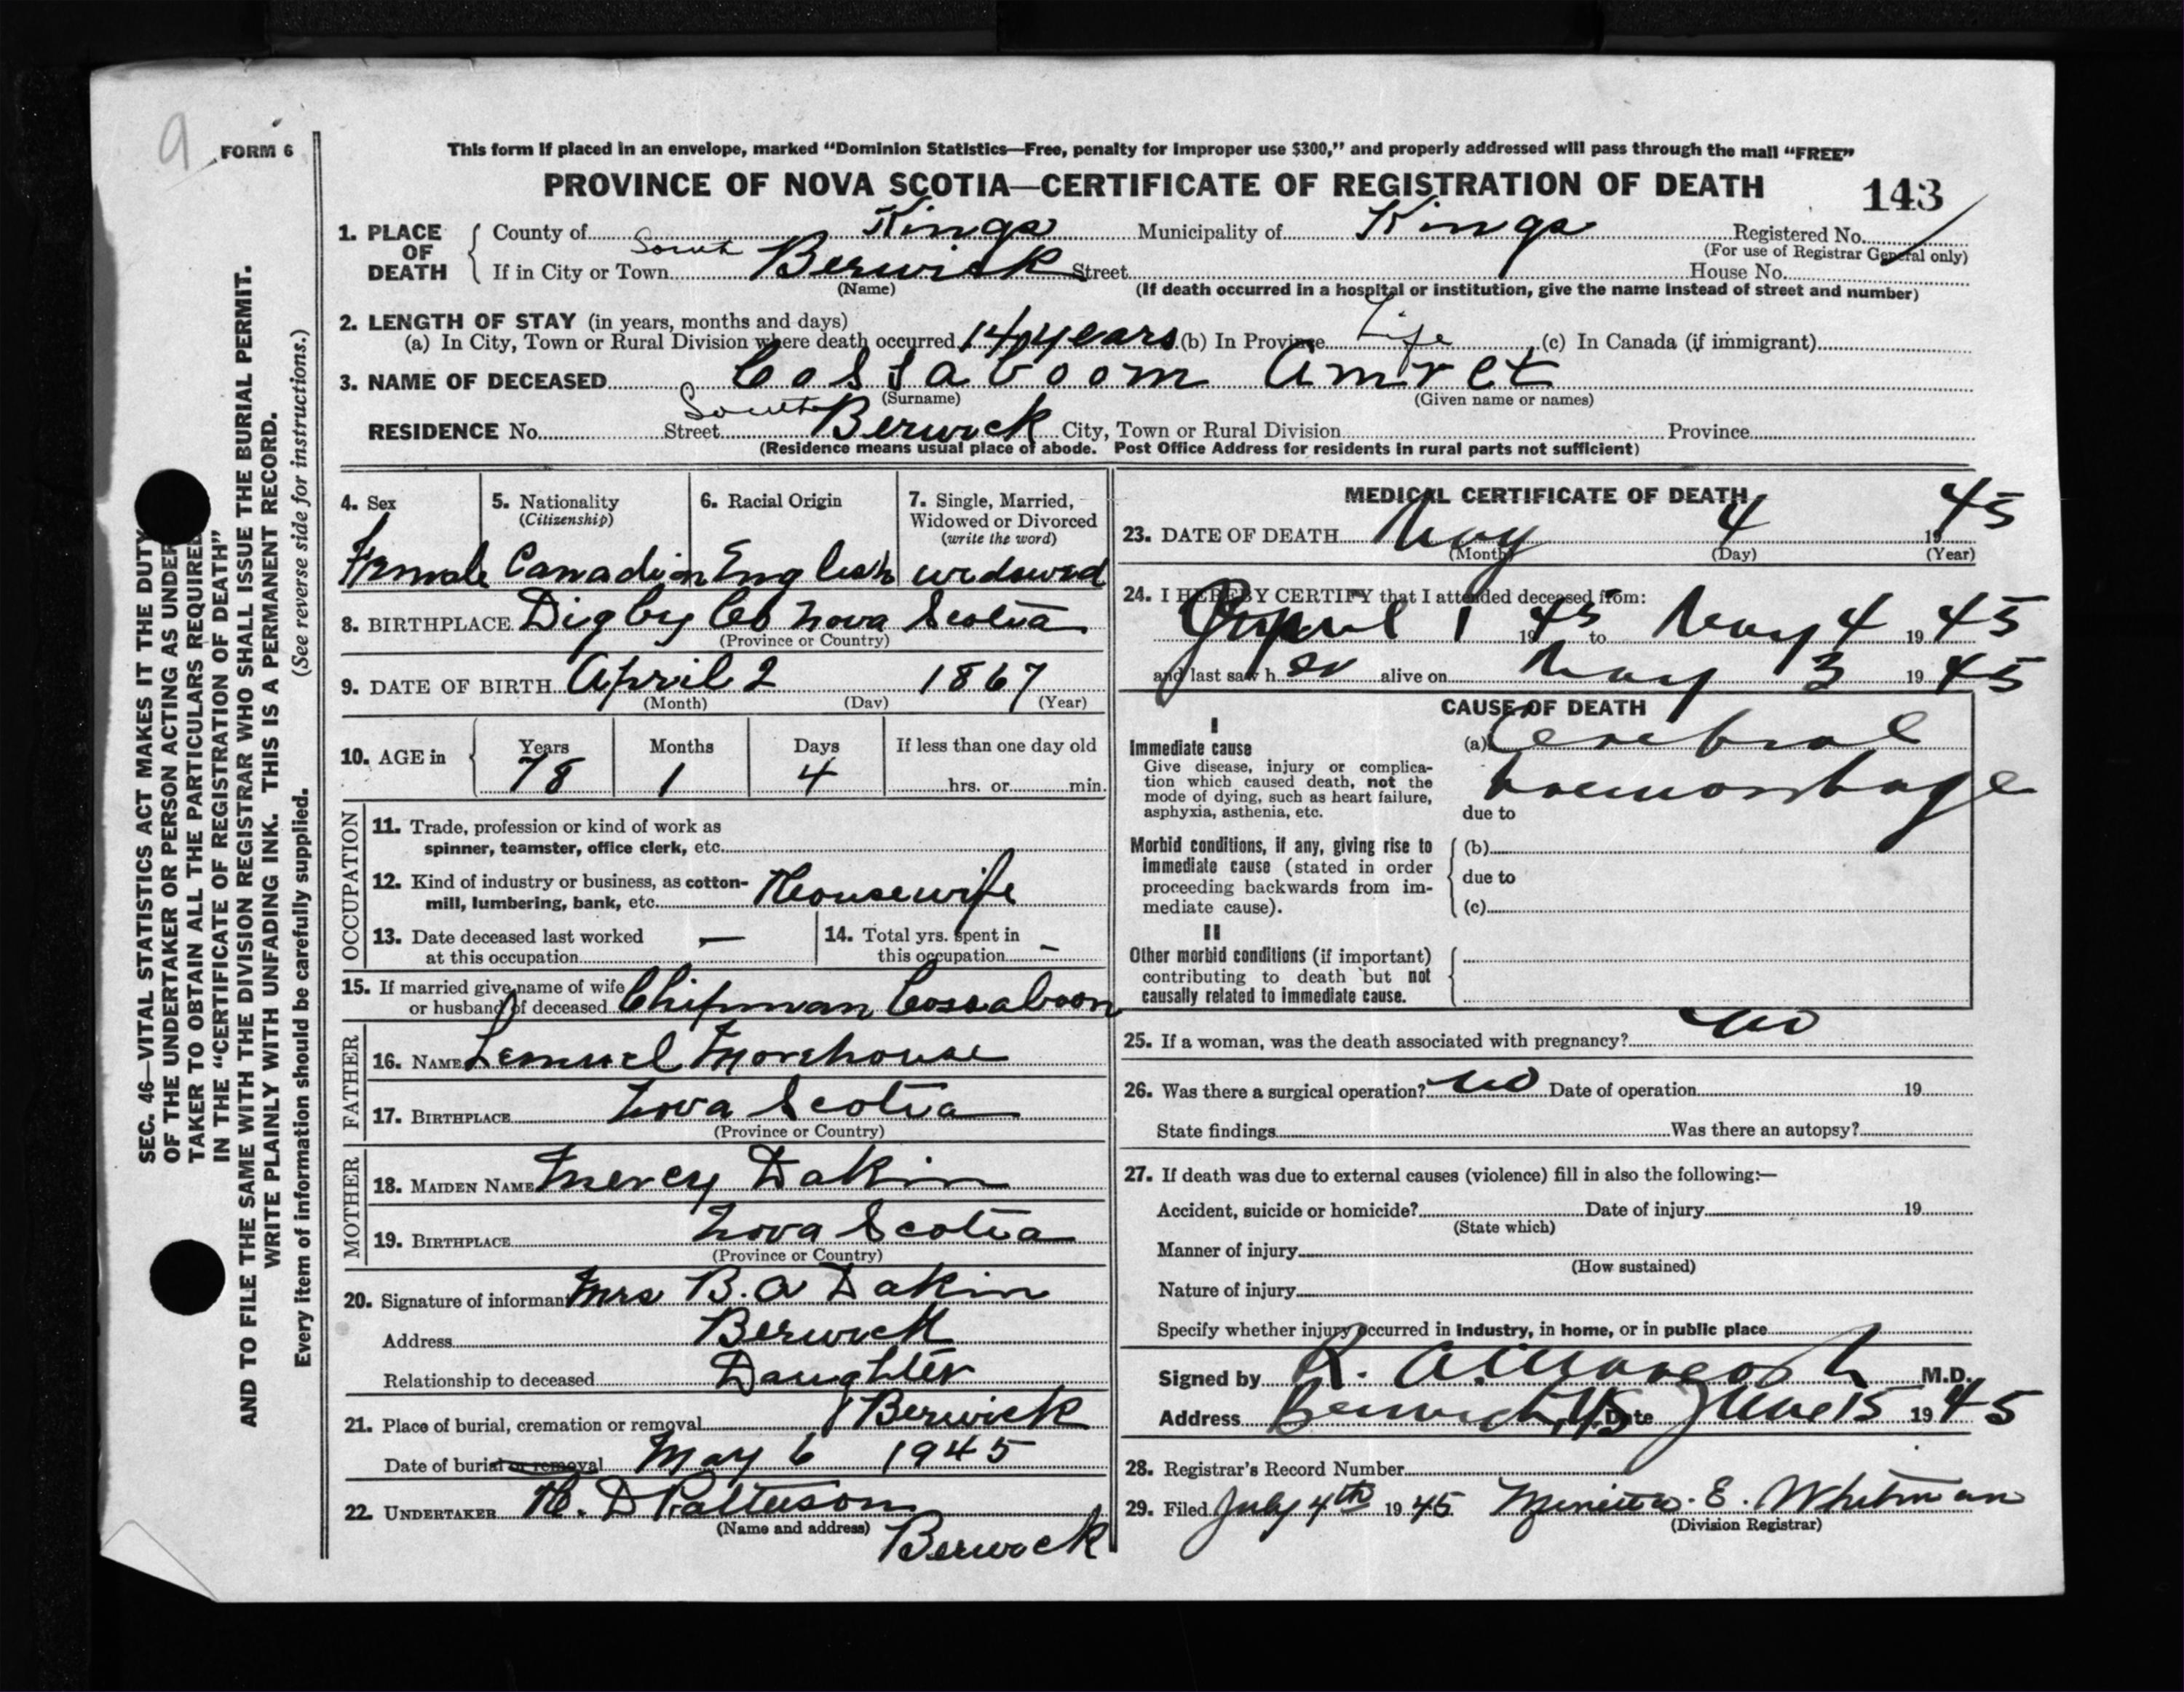 9
FORM 6
This form if placed in an envelope, marked “Dominion Statistics—Free, penalty for improper use $300,” and properly addressed will pass through the mail “FREE”
PROVINCE OF NOVA SCOTIA—CERTIFICATE OF REGISTRATION OF DEATH
143
1. PLACE OF DEATH { County of Kings Municipality of Kings Registered No.
(For use of Registrar General only)
If in City or Town South Berwick Street House No.
(Name) (If death occurred in a hospital or institution, give the name instead of street and number)
2. LENGTH OF STAY (in years, months and days)
(a) In City, Town or Rural Division where death occurred 14 years (b) In Province Life (c) In Canada (if immigrant)
3. NAME OF DECEASED Cossaboom Amret
(Surname) (Given name or names)
RESIDENCE No. Street South Berwick City, Town or Rural Division Province
(Residence means usual place of abode. Post Office Address for residents in rural parts not sufficient)
4. Sex
Female
5. Nationality
(Citizenship)
Canadian
6. Racial Origin
English
7. Single, Married,
Widowed or Divorced
(write the word)
widowed
8. BIRTHPLACE Digby Co Nova Scotia
(Province or Country)
9. DATE OF BIRTH April 2 1867
(Month) (Day) (Year)
10. AGE in { Years Months Days If less than one day old
78 1 4 hrs. or min.
OCCUPATION
11. Trade, profession or kind of work as
spinner, teamster, office clerk, etc.
12. Kind of industry or business, as cotton-
mill, lumbering, bank, etc. Housewife
13. Date deceased last worked
at this occupation —
14. Total yrs. spent in
this occupation —
15. If married give name of wife
or husband of deceased Chipman Cossaboom
FATHER
16. NAME Lemuel Morehouse
17. BIRTHPLACE Nova Scotia
(Province or Country)
MOTHER
18. MAIDEN NAME Mercy Dakin
19. BIRTHPLACE Nova Scotia
(Province or Country)
20. Signature of informant Mrs B. A Dakin
Address Berwick
Relationship to deceased Daughter
21. Place of burial, cremation or removal Berwick
Date of burial or removal May 6 1945
22. UNDERTAKER H. D Patterson
(Name and address) Berwick
MEDICAL CERTIFICATE OF DEATH
23. DATE OF DEATH May 4 1945
(Month) (Day) (Year)
24. I HEREBY CERTIFY that I attended deceased from:
April 1 1945 to May 4 1945
and last saw h er alive on May 3 1945
CAUSE OF DEATH
I
Immediate cause
Give disease, injury or complica-
tion which caused death, not the
mode of dying, such as heart failure,
asphyxia, asthenia, etc.
(a) Cerebral
haemorrhage
due to
Morbid conditions, if any, giving rise to
immediate cause (stated in order
proceeding backwards from im-
mediate cause).
(b)
due to
(c)
II
Other morbid conditions (if important)
contributing to death but not
causally related to immediate cause.
25. If a woman, was the death associated with pregnancy? no
26. Was there a surgical operation? no Date of operation 19
State findings Was there an autopsy?
27. If death was due to external causes (violence) fill in also the following:—
Accident, suicide or homicide? Date of injury 19
(State which)
Manner of injury
(How sustained)
Nature of injury
Specify whether injury occurred in industry, in home, or in public place
Signed by R. A. M.D.
Address Berwick, NS Date June 15 1945
28. Registrar's Record Number
29. Filed July 4th 1945 E. Whitman
(Division Registrar)
SEC. 46—VITAL STATISTICS ACT MAKES IT THE DUTY
OF THE UNDERTAKER OR PERSON ACTING AS UNDER
TAKER TO OBTAIN ALL THE PARTICULARS REQUIRED
IN THE “CERTIFICATE OF REGISTRATION OF DEATH”
AND TO FILE THE SAME WITH THE DIVISION REGISTRAR WHO SHALL ISSUE THE BURIAL PERMIT.
WRITE PLAINLY WITH UNFADING INK. THIS IS A PERMANENT RECORD.
Every item of information should be carefully supplied. (See reverse side for instructions.)